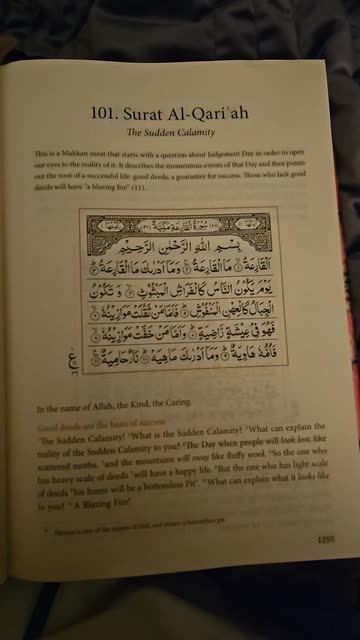 101. Surat Al-Qariʿah
The Sudden Calamity
This is a Makkan surat that starts with a question about Judgement Day in order to open
our eyes to the reality of it. It describes the momentous events of that Day and then points
out the root of a successful life: good deeds, a guarantee for success. Those who lack good
deeds will have "a blazing fire" (11).
سُوْرَةُ الْقَارِعَةِ مَكِّيَّةٌ
بِسْمِ اللهِ الرَّحْمٰنِ الرَّحِيْمِ
اَلْقَارِعَةُ ۙ مَا الْقَارِعَةُ ۚ وَمَاۤ اَدْرٰىكَ مَا الْقَارِعَةُ ؕ
يَوْمَ يَكُوْنُ النَّاسُ كَالْفَرَاشِ الْمَبْثُوْثِ ۙ وَ تَكُوْنُ
الْجِبَالُ كَالْعِهْنِ الْمَنْفُوْشِ ؕ فَاَمَّا مَنْ ثَقُلَتْ مَوَازِيْنُهٗ ۙ
فَهُوَ فِيْ عِيْشَةٍ رَّاضِيَةٍ ؕ وَاَمَّا مَنْ خَفَّتْ مَوَازِيْنُهٗ ۙ
فَاُمُّهٗ هَاوِيَةٌ ؕ وَمَاۤ اَدْرٰىكَ مَا هِيَهْ ؕ نَارٌ حَامِيَةٌ
ع
In the name of Allah, the Kind, the Caring.
Good deeds are the basis of success
¹The Sudden Calamity! ²What is the Sudden Calamity? ³What can explain the
reality of the Sudden Calamity to you? ⁴The Day when people will look lost, like
scattered moths, ⁵and the mountains will sway like fluffy wool. ⁶So the one who
has heavy scale of deeds ⁷will have a happy life. ⁸But the one who has light scale
of deeds ⁹his home will be a bottomless Pit*. ¹⁰What can explain what it looks like
to you? ¹¹A Blazing Fire!
* Hawiya is one of the names of Hell, and means a bottomless pit.
1295